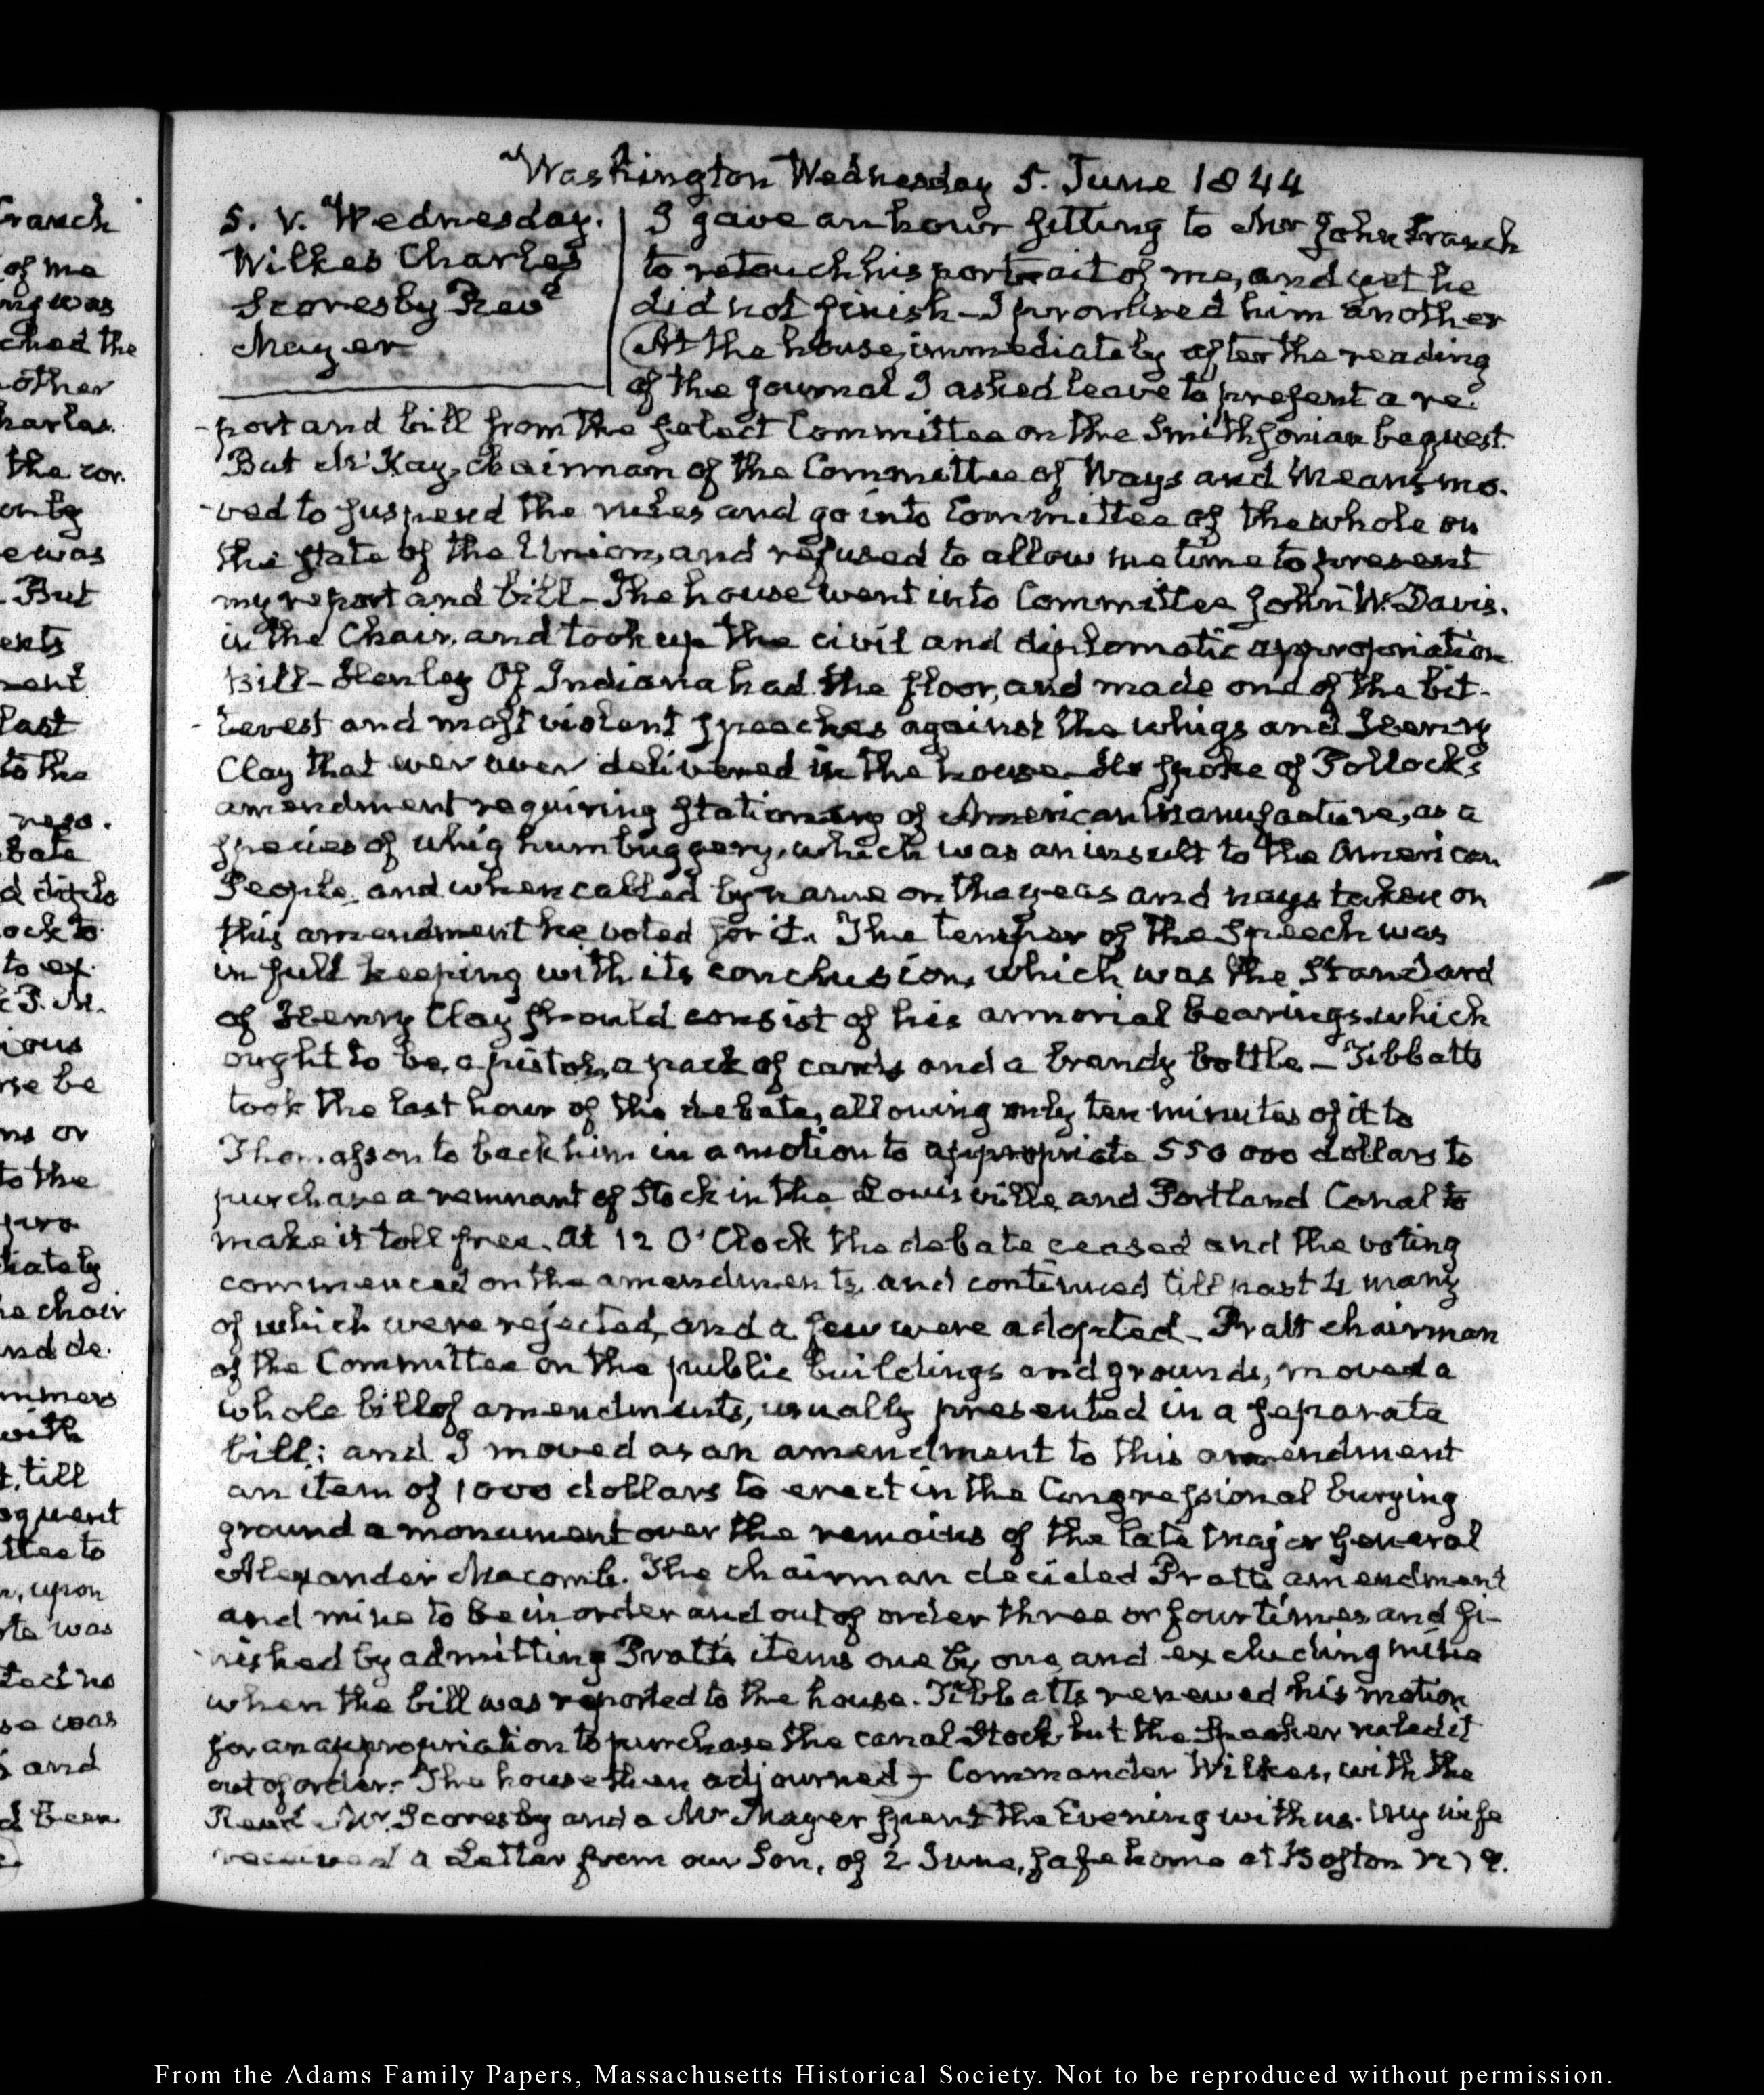 Washington Wednesday 5. June 1844
5. V. Wednesday.
Wilkes Charles
Scoresby Revd
Mayer
I gave an hour sitting to Mr John Cranch
to retouch his portrait of me, and yet he
did not finish_ I promised him another
At the house, immediately after the reading
of the journal I asked leave to present a re-
-port and bill from the select Committee on the Smithsonian bequest.
But McKay, chairman of the Committee of Ways and Means mo-
-ved to suspend the rules and go into Committee of the whole on
the state of the Union, and refused to allow me time to present
my report and bill_ The house went into Committee John W. Davis.
in the Chair, and took up the civil and diplomatic appropriation
bill_ Henley Of Indiana had the floor, and made one of the bit-
-terest and most violent speeches against the whigs and Henry
Clay that ever was delivered in the house_ He spoke of Pollock's
amendment requiring stationery of American Manufacture, as a
species of whig humbuggery, which was an insult to the American
People, and when called by name on the yeas and nays taken on
this amendment he voted for it. The temper of the Speech was
in full keeping with its conclusion, which was the Standard
of Henry Clay should consist of his armorial bearings, which
ought to be, a pistol, a pack of cards and a brandy bottle_ Tibbatts
took the last hour of the debate, allowing only ten minutes of it to
Thomasson to back him in a motion to appropriate 550 000 dollars to
purchase a remnant of Stock in the Louisville and Portland Canal to
make it toll free. At 12 O'Clock the debate ceased and the voting
commenced on the amendments, and continued till past 4 many
of which were rejected, and a few were adopted_ Pratt chairman
of the Committee on the public buildings and grounds, moved a
whole bill of amendments, usually presented in a separate
bill; and I moved as an amendment to this amendment
an item of 1000 dollars to erect in the Congressional burying
ground a monument over the remains of the late Major General
Alexander Macomb. The chairman decided Pratts amendment
and mine to be in order and out of order three or four times and fi-
-nished by admitting Pratts items one by one, and excluding mine
when the bill was reported to the house. Tibbatts renewed his motion
for an appropriation to purchase the canal Stock but the Speaker ruled it
out of order._ The house then adjourned) Commander Wilkes, with the
Revd Mr Scoresby and a Mr Mayer spent the Evening with us. My wife
received a Letter from our Son, of 2 June, safe home at Boston
ranch
of me
ng was
ched the
other
harles.
the cor.
e was
But
ents
last
to the
bate
ock to
to ex.
ious
se be
ns or
to the
pro
iately
he chair
nd de.
mmers
with
t, till
ttee to
n, upon
te was
se was
s and
d been
From the Adams Family Papers, Massachusetts Historical Society. Not to be reproduced without permission.